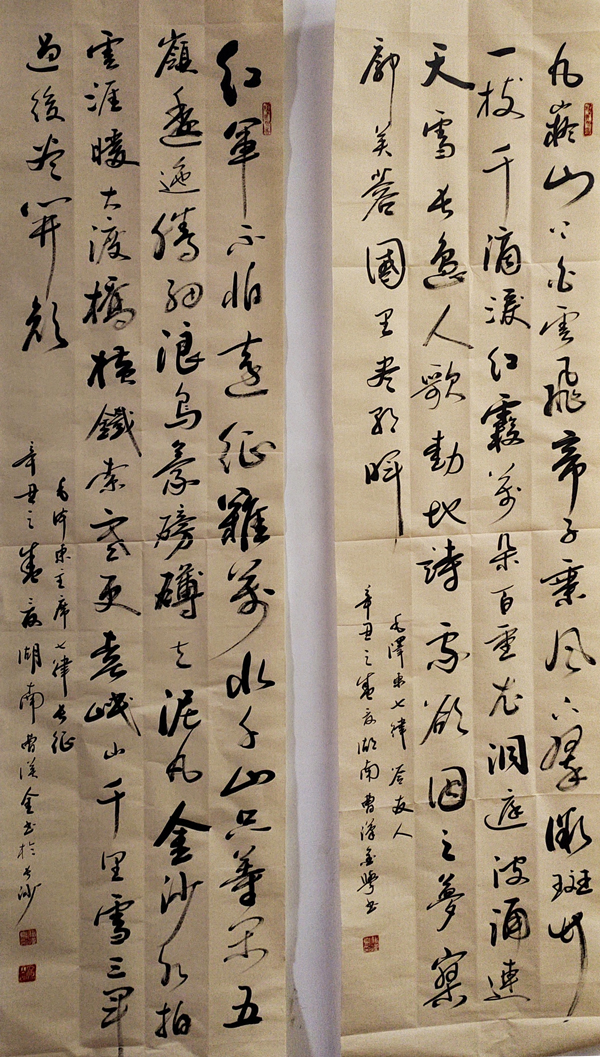 九嶷山上白雲飛帝子乘風下翠微斑竹
一枝千滴淚紅霞萬朵百重衣洞庭波涌連
天雪長島人歌動地詩我欲因之夢寥
廓芙蓉國里盡朝暉
毛澤東七律答友人
辛丑之盛夏湖南曹金學書
紅軍不怕遠征難萬水千山只等閑五
嶺逶迤騰細浪烏蒙磅礴走泥丸金沙水拍
雲涯暖大渡橋橫鐵索寒更喜岷山千里雪三軍
過後盡開顏
毛澤東主席七律長征
辛丑之盛夏湖南曹金書於長沙